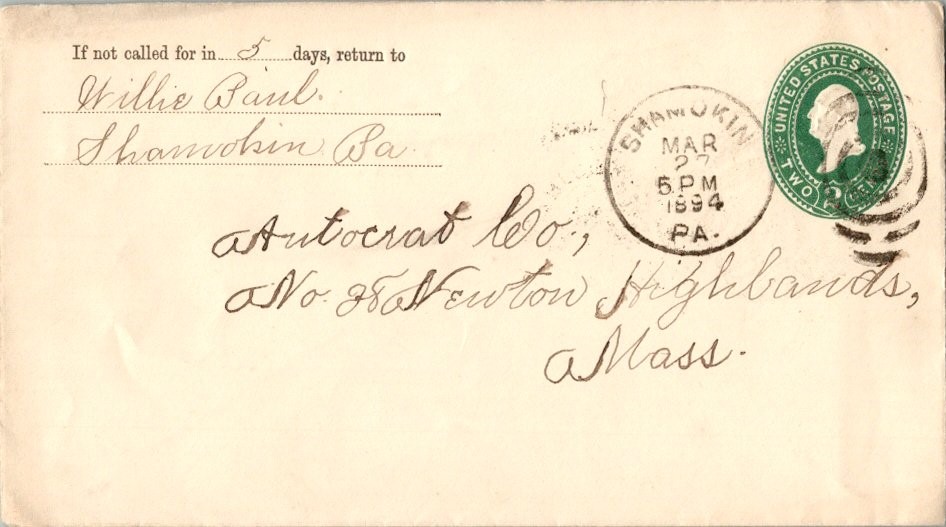 If not called for in 5 days, return to
Willie Paul.
Shamokin Pa
SHAMOKIN
MAR
27
5 PM
1894
PA.
UNITED STATES POSTAGE
TWO CENTS
Autocrat Co.,
No. 28 Newton Highlands,
Mass.